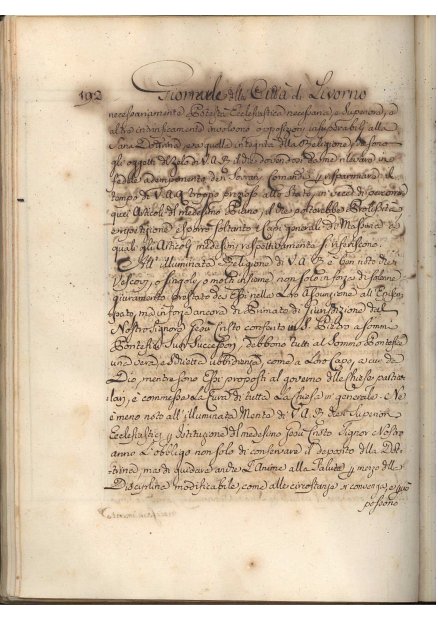 192 Giornale della Città di Livorno
necessariamente Potestà Ecclesiastica necessaria, e Superiori, ed
altre involvono opposizioni insuperabili alla
Sana Dottrina, ed a quella integrità della Religione, che sono
gli oggetti del Zelo di V.A.R. dovendosi da me rilevare in
adempimento de Sovrani Comandi, e risparmiare il
tempo di V.A.R. troppo prezioso allo Stato, in vece di percorrere
quei Articoli del medesimo Piano, il che porterebbe Prolissità
e repetizione esporrò soltanto i Capi generali di Massima, a
quali gli Articoli medesimi respettivamente si riferiscono.
All' illuminata Religione di V.A.R. è ben noto che i
Vescovi, o singoli, o molti insieme non solo in forza di solenne
giuramento prestato da Essi nella loro Assunzione all' Episco-
pato, ma in forza ancora di Primato di Giurisdizione dal
Nostro Signore Gesù Cristo conferito a S. Pietro, a Sommi
Pontefici Suoi Successori, debbono tutti al Sommo Pontefice
una vera, e diretta ubbidienza, come a loro Capo, a cui da
Dio, mentre sono Essi proposti al governo delle Chiese partico-
lari, è commessa la Cura di tutta la Chiesa in generale. Nè
è meno noto all' illuminata Mente di V.A.R. che i Superiori
Ecclesiastici per Istituzione del medesimo Gesù Cristo Signor Nostro
anno l'obbligo non solo di conservare il deposito della Dot-
trina, ma di guidare anche l'Anime alla Salute per mezzo della
Disciplina modificabile, come alle circostanze si convenga, e quin
possono